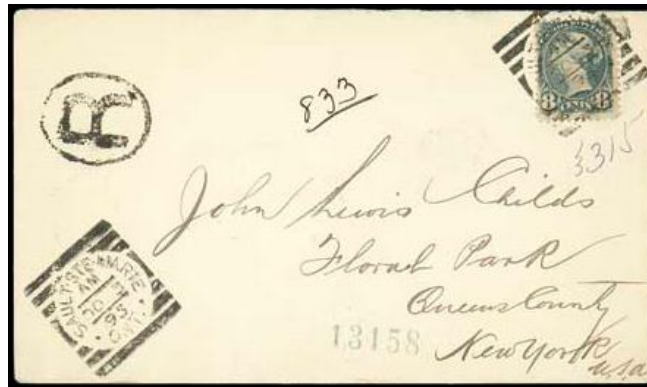 R
833
8 CENTS 8
3315
John Lewis Childs
Floral Park
Queens County
New York
U.S.a
13158
SAULT STE MARIE
AM
20
95
ONT.